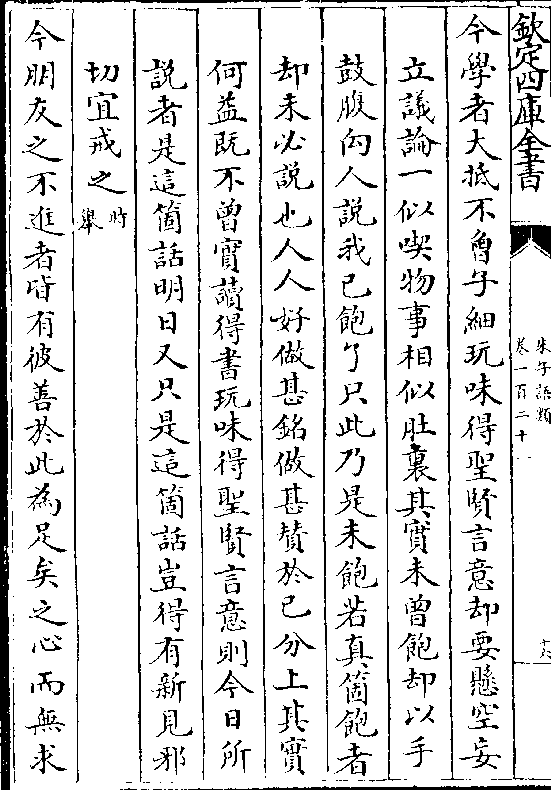 欽定四庫全書
朱子語類
卷一百二十
十六
今學者大抵不曾子細玩味得聖賢言意却要懸空妄
立議論一似喫物事相似肚裏其實未曾飽却以手
鼓腹向人說我已飽了只此乃是未飽若真箇飽者
却未必說也人人好做甚銘做甚贊於己分上其實
何益既不曾實讀得書玩味得聖賢言意則今日所
說者是這箇話明日又只是這箇話豈得有新見邪
切宜戒之時舉
今朋友之不進者皆有彼善於此為足矣之心而無求